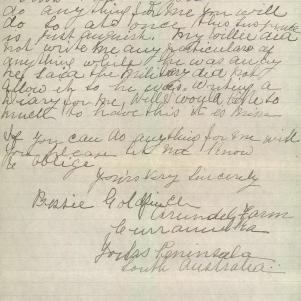 do anything for me you will
do so at once this last
is just anguish. my Willie did
not write me any particulars of
anything while he was away
he said the Military did not
allow it so he was. Writing a
Diary for me, Will would like so
much to have this it is mine
If you can do anything for me will
you please let me know
& oblige
Yours Very Sincerely
Bessie Goldfinch
Arundel Farm
Curramulka
Yorkes Peninsula
South Australia.